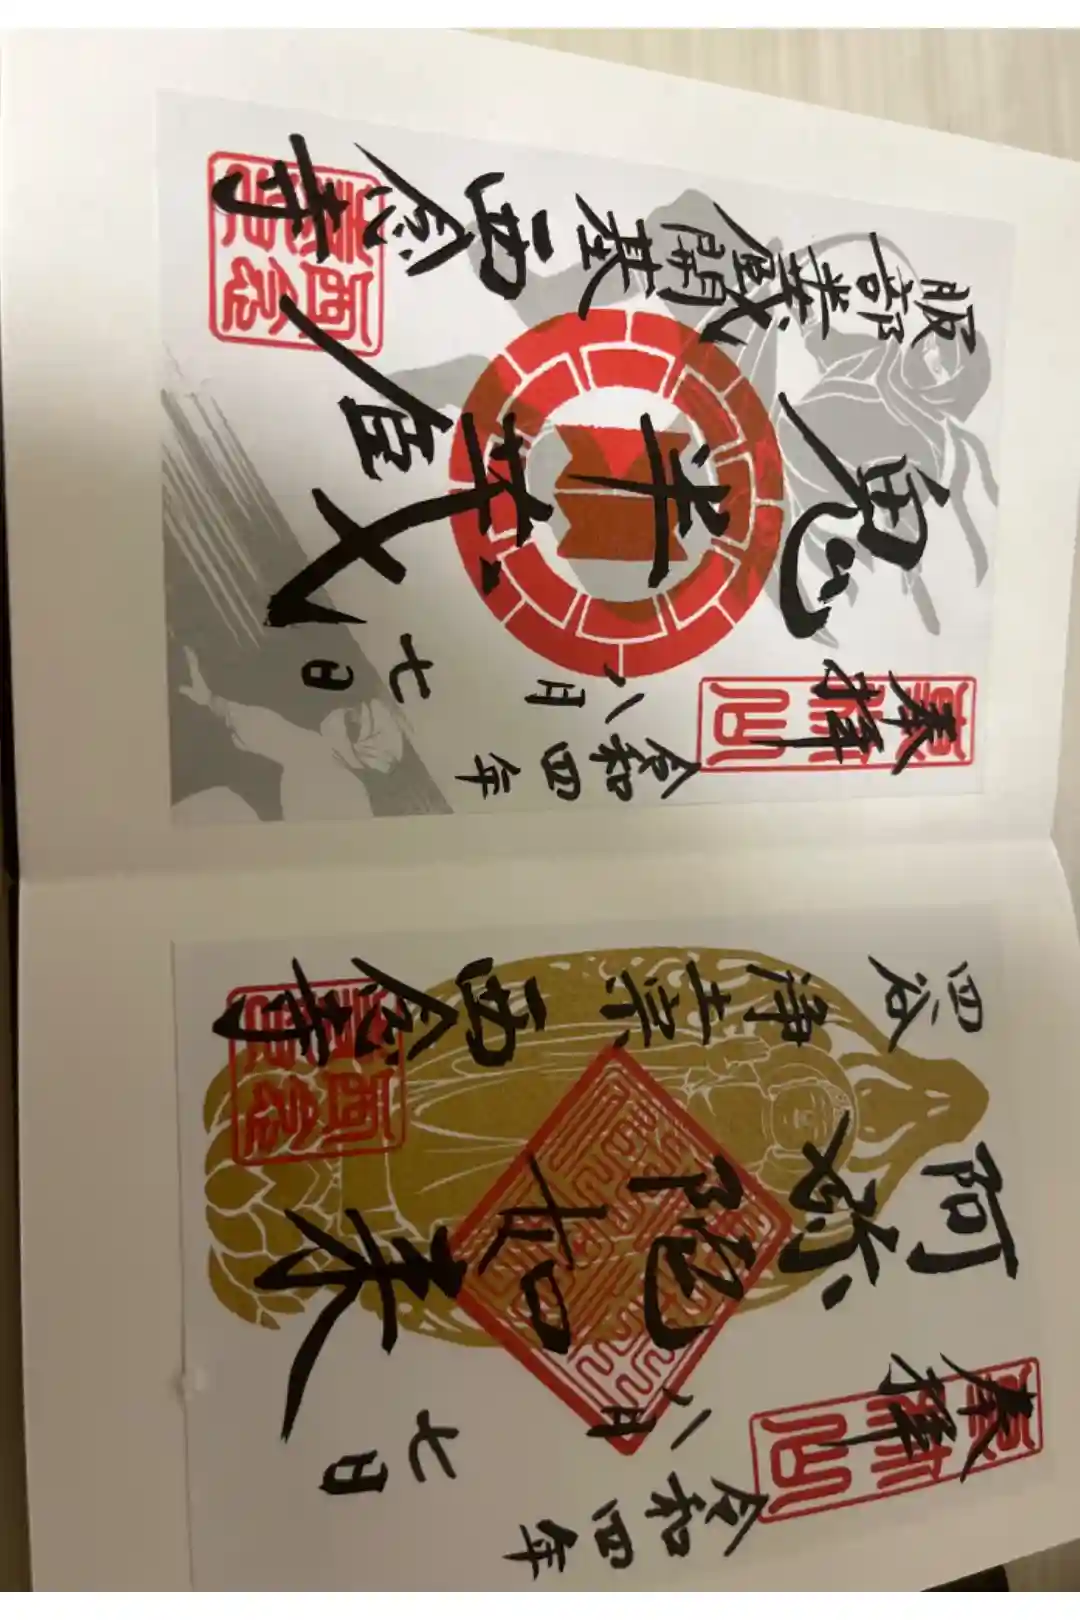 奉拝
令和四年
八月七日
阿弥陀如来
四谷 浄土宗 西念寺
奉拝
令和四年
八月七日
鬼半蔵
服部半蔵開基 西念寺